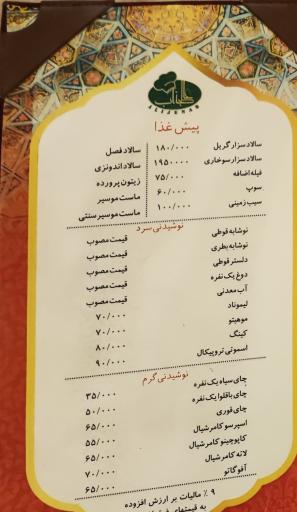 عالیجناب
ALIJENAB
پیش غذا
سالاد سزار گریل ۱۸۰/۰۰۰ سالاد فصل
سالاد سزار سوخاری ۱۹۵۰۰۰۰ سالاد اندونزی
فیله اضافه ۷۵/۰۰۰ زیتون پرورده
سوپ ۶۰/۰۰۰ ماست موسیر
سیب زمینی ۱۰۰/۰۰۰ ماست موسیر سنتی
نوشیدنی سرد
نوشابه قوطی قیمت مصوب
نوشابه بطری قیمت مصوب
دلستر قوطی قیمت مصوب
دوغ یک نفره قیمت مصوب
آب معدنی قیمت مصوب
لیموناد ۷۰/۰۰۰
موهیتو ۷۰/۰۰۰
کینگ ۸۰/۰۰۰
اسموتی تروپیکال ۹۰/۰۰۰
نوشیدنی گرم
چای سیاه یک نفره ۳۵/۰۰۰
چای باقلوا یک نفره ۵۰/۰۰۰
چای قوری ۶۵/۰۰۰
اسپرسو کامرشیال ۵۵/۰۰۰
کاپوچینو کامرشیال ۶۵/۰۰۰
لاته کامرشیال ۷۰/۰۰۰
آفوگاتو ۶۵/۰۰۰
۹ ٪ مالیات بر ارزش افزوده
به قیمتهای